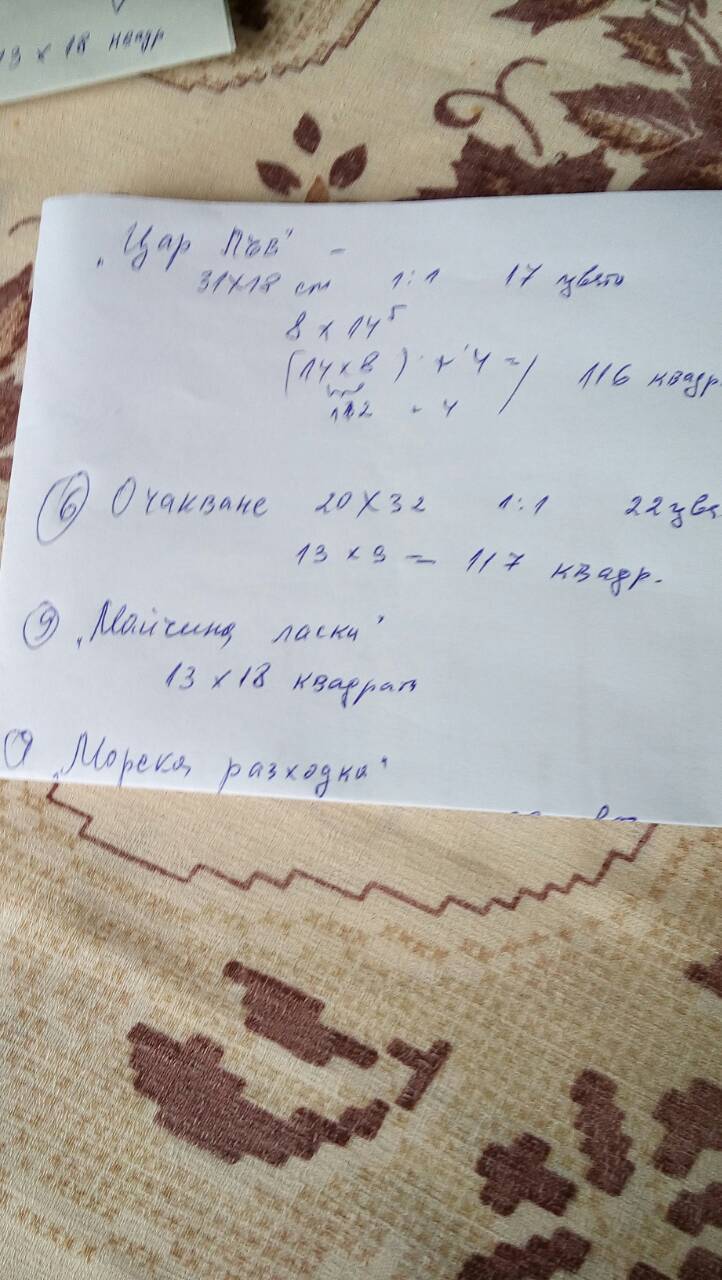 13 x 18 квадр
„Цар Лъв" -
31x18 cm 1:1 17 цвята
8 x 14⁵
(14x8) + 4 = 116 квадр.
112 + 4
⑥ Очакване 20X32 1:1 22 цвя
13 x 9 = 117 квадр.
⑨ „Майчина ласка"
13 x 18 квадрата
„Морска разходка"